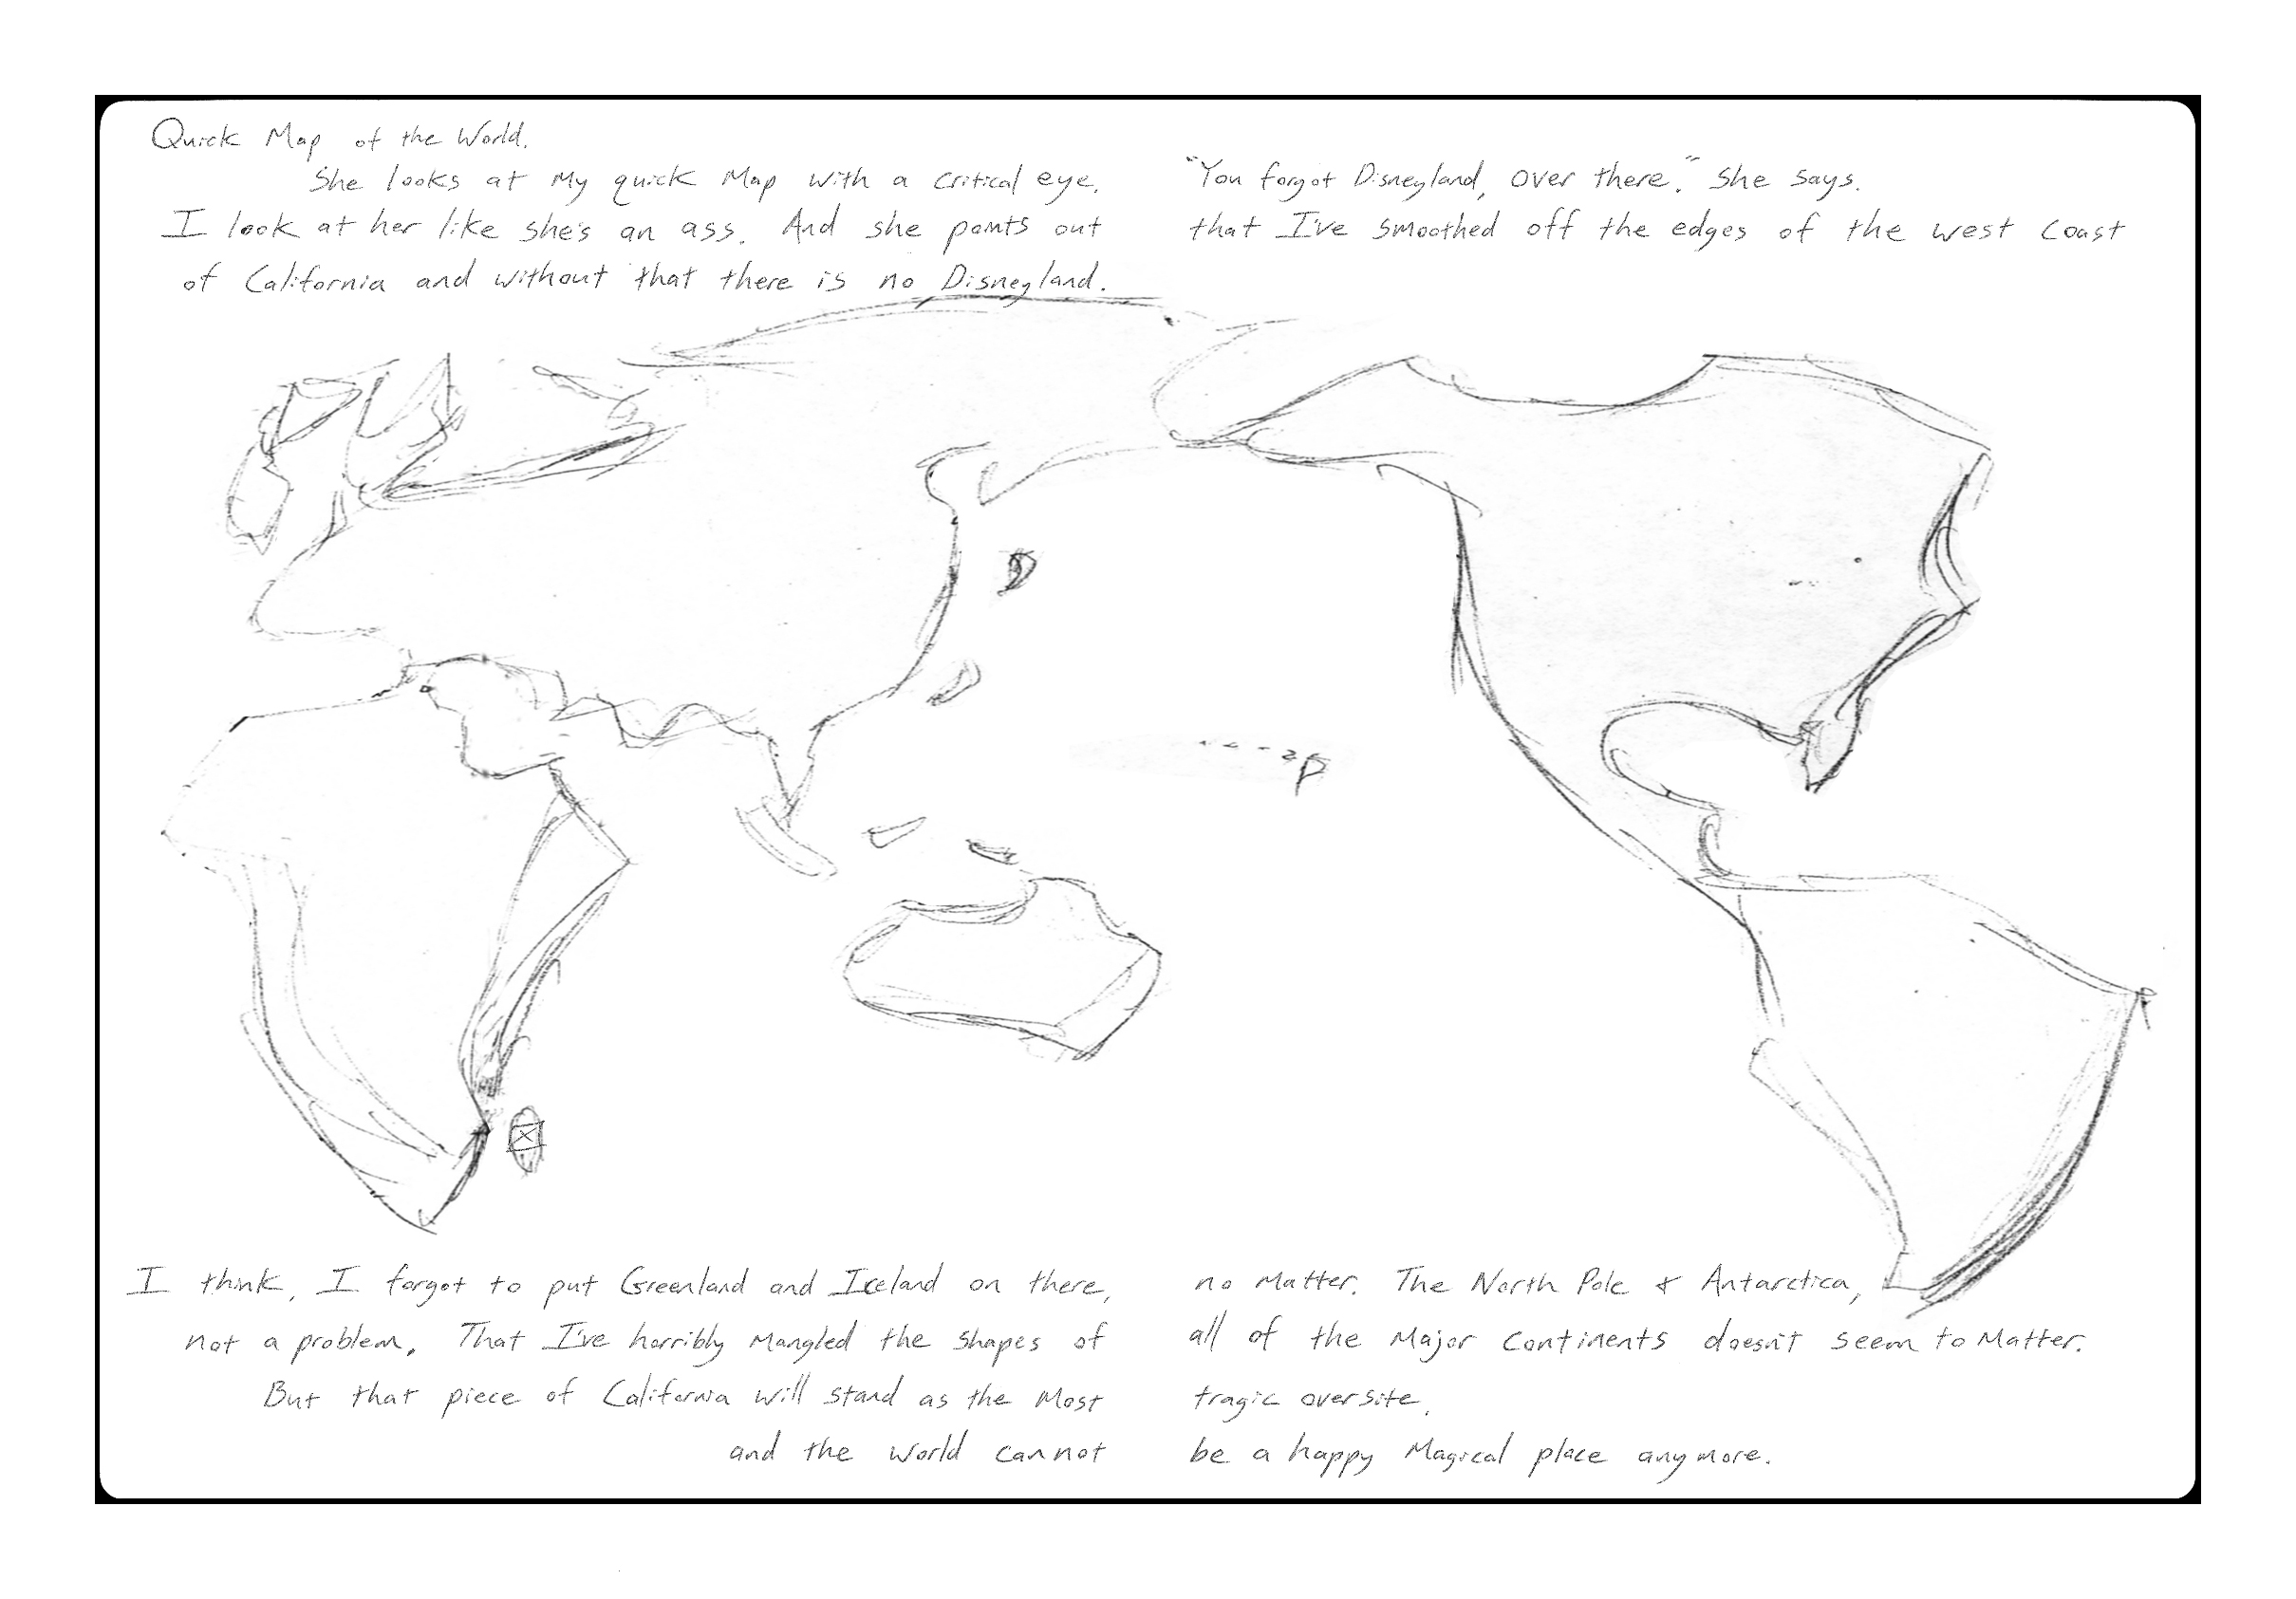 Quick Map of the World.
She looks at My quick Map with a critical eye. "You forgot Disneyland, over there." She says.
I look at her like she's an ass. And she points out that I've smoothed off the edges of the west coast
of California and without that there is no Disneyland.
I think, I forgot to put Greenland and Iceland on there, no matter. The North Pole & Antarctica,
not a problem. That I've horribly Mangled the shapes of all of the Major continents doesn't seem to Matter.
But that piece of California will stand as the Most tragic oversite,
and the World cannot be a happy Magical place anymore.